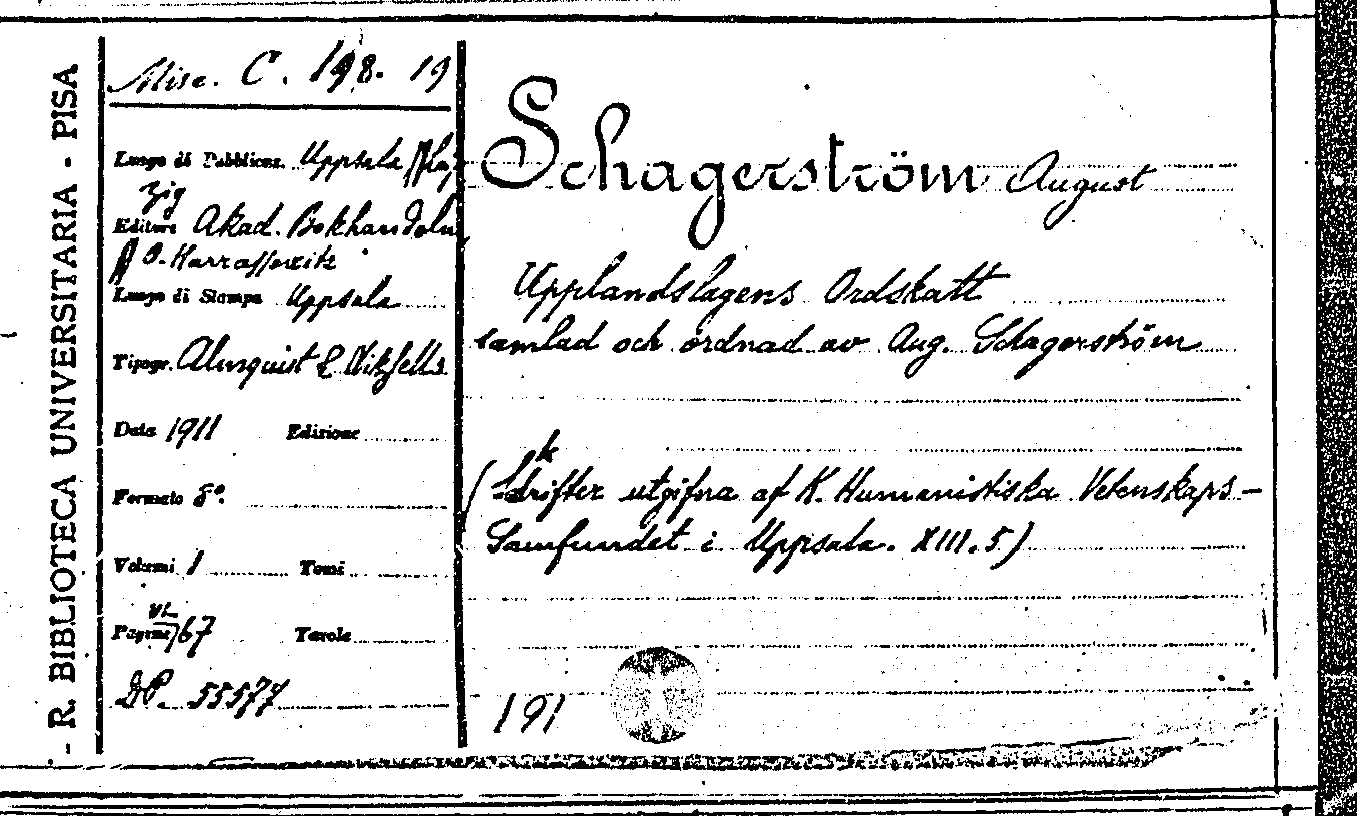 - R. BIBLIOTECA UNIVERSITARIA - PISA
Misc. C. 198. 19
Luogo di Pubblicaz. Uppsala // Leip
zig
Editore Akad. Bokhandeln
// O. Harrassowitz
Luogo di Stampa Uppsala
Tipogr. Almquist & Wiksells
Data 1911 Edizione
Formato 8°.
Volumi 1 Tomi
Pagine VI 67 Tavole
DP. 55577
Schagerström August
Upplandslagens Ordskatt
samlad och ordnad av Aug. Schagerström
(Skrifter utgifna af K. Humanistiska Vetenskaps-
Samfundet i Uppsala. XIII. 5)
191